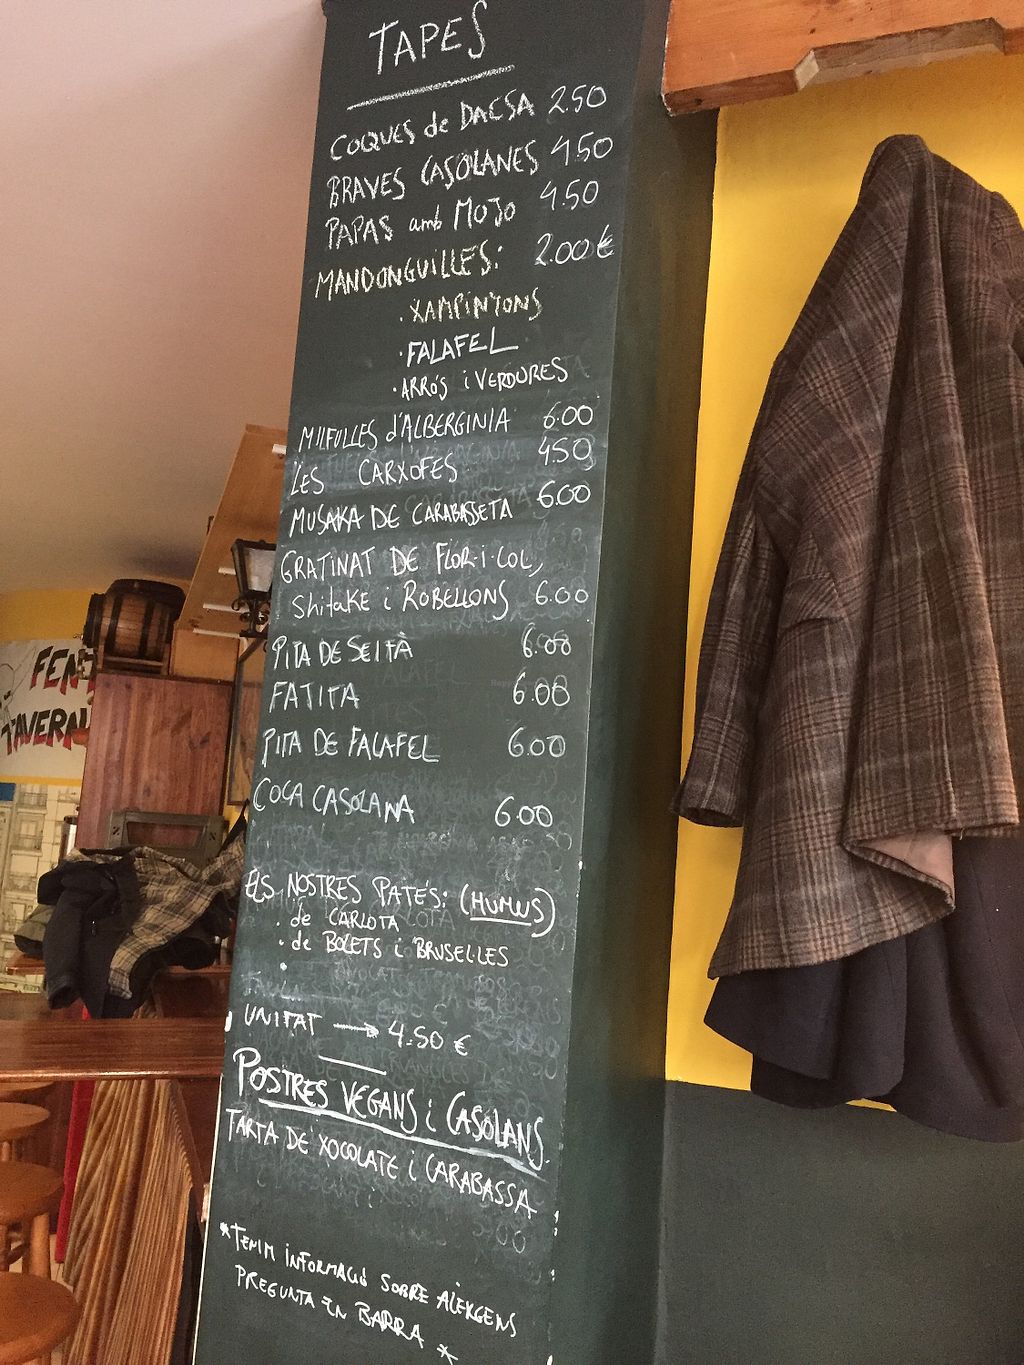 TAPES
COQUES de DACSA 2.50
BRAVES CASOLANES 4.50
PAPAS amb MOJO 4.50
MANDONGUILLES: 2.00€
. XAMPINYONS
. FALAFEL
. ARRÓS i VERDURES
MILFULLES d'ALBERGINIA 6.00
LES CARXOFES 4.50
MUSAKA DE CARABASSETA 6.00
GRATINAT DE FLOR·I·COL,
Shitake i ROBELLONS 6.00
PITA DE SEITÀ 6.00
FATITA 6.00
PITA DE FALAFEL 6.00
COCA CASOLANA 6.00
ELS NOSTRES PATÉS: (HUMUS)
. de CARLOTA
. de BOLETS i BRUSEL·LES
.
UNITAT → 4.50 €
POSTRES VEGANS i CASOLANS
TARTA DE XOCOLATE i CARABASSA
*TENIM INFORMACIÓ SOBRE ALERGENS
PREGUNTA EN BARRA *
FEN
TAVERN